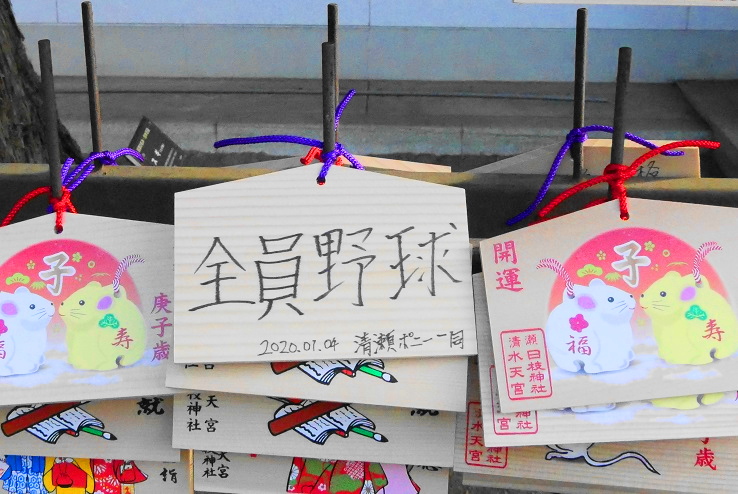 子
寿
福
庚子歳
全員野球
2020.01.04 清瀬ポニー一同
開運
子
寿
福
清瀬
水日
天枝
宮神社
天宮
枝神社
就
就
天宮
神社
子歳